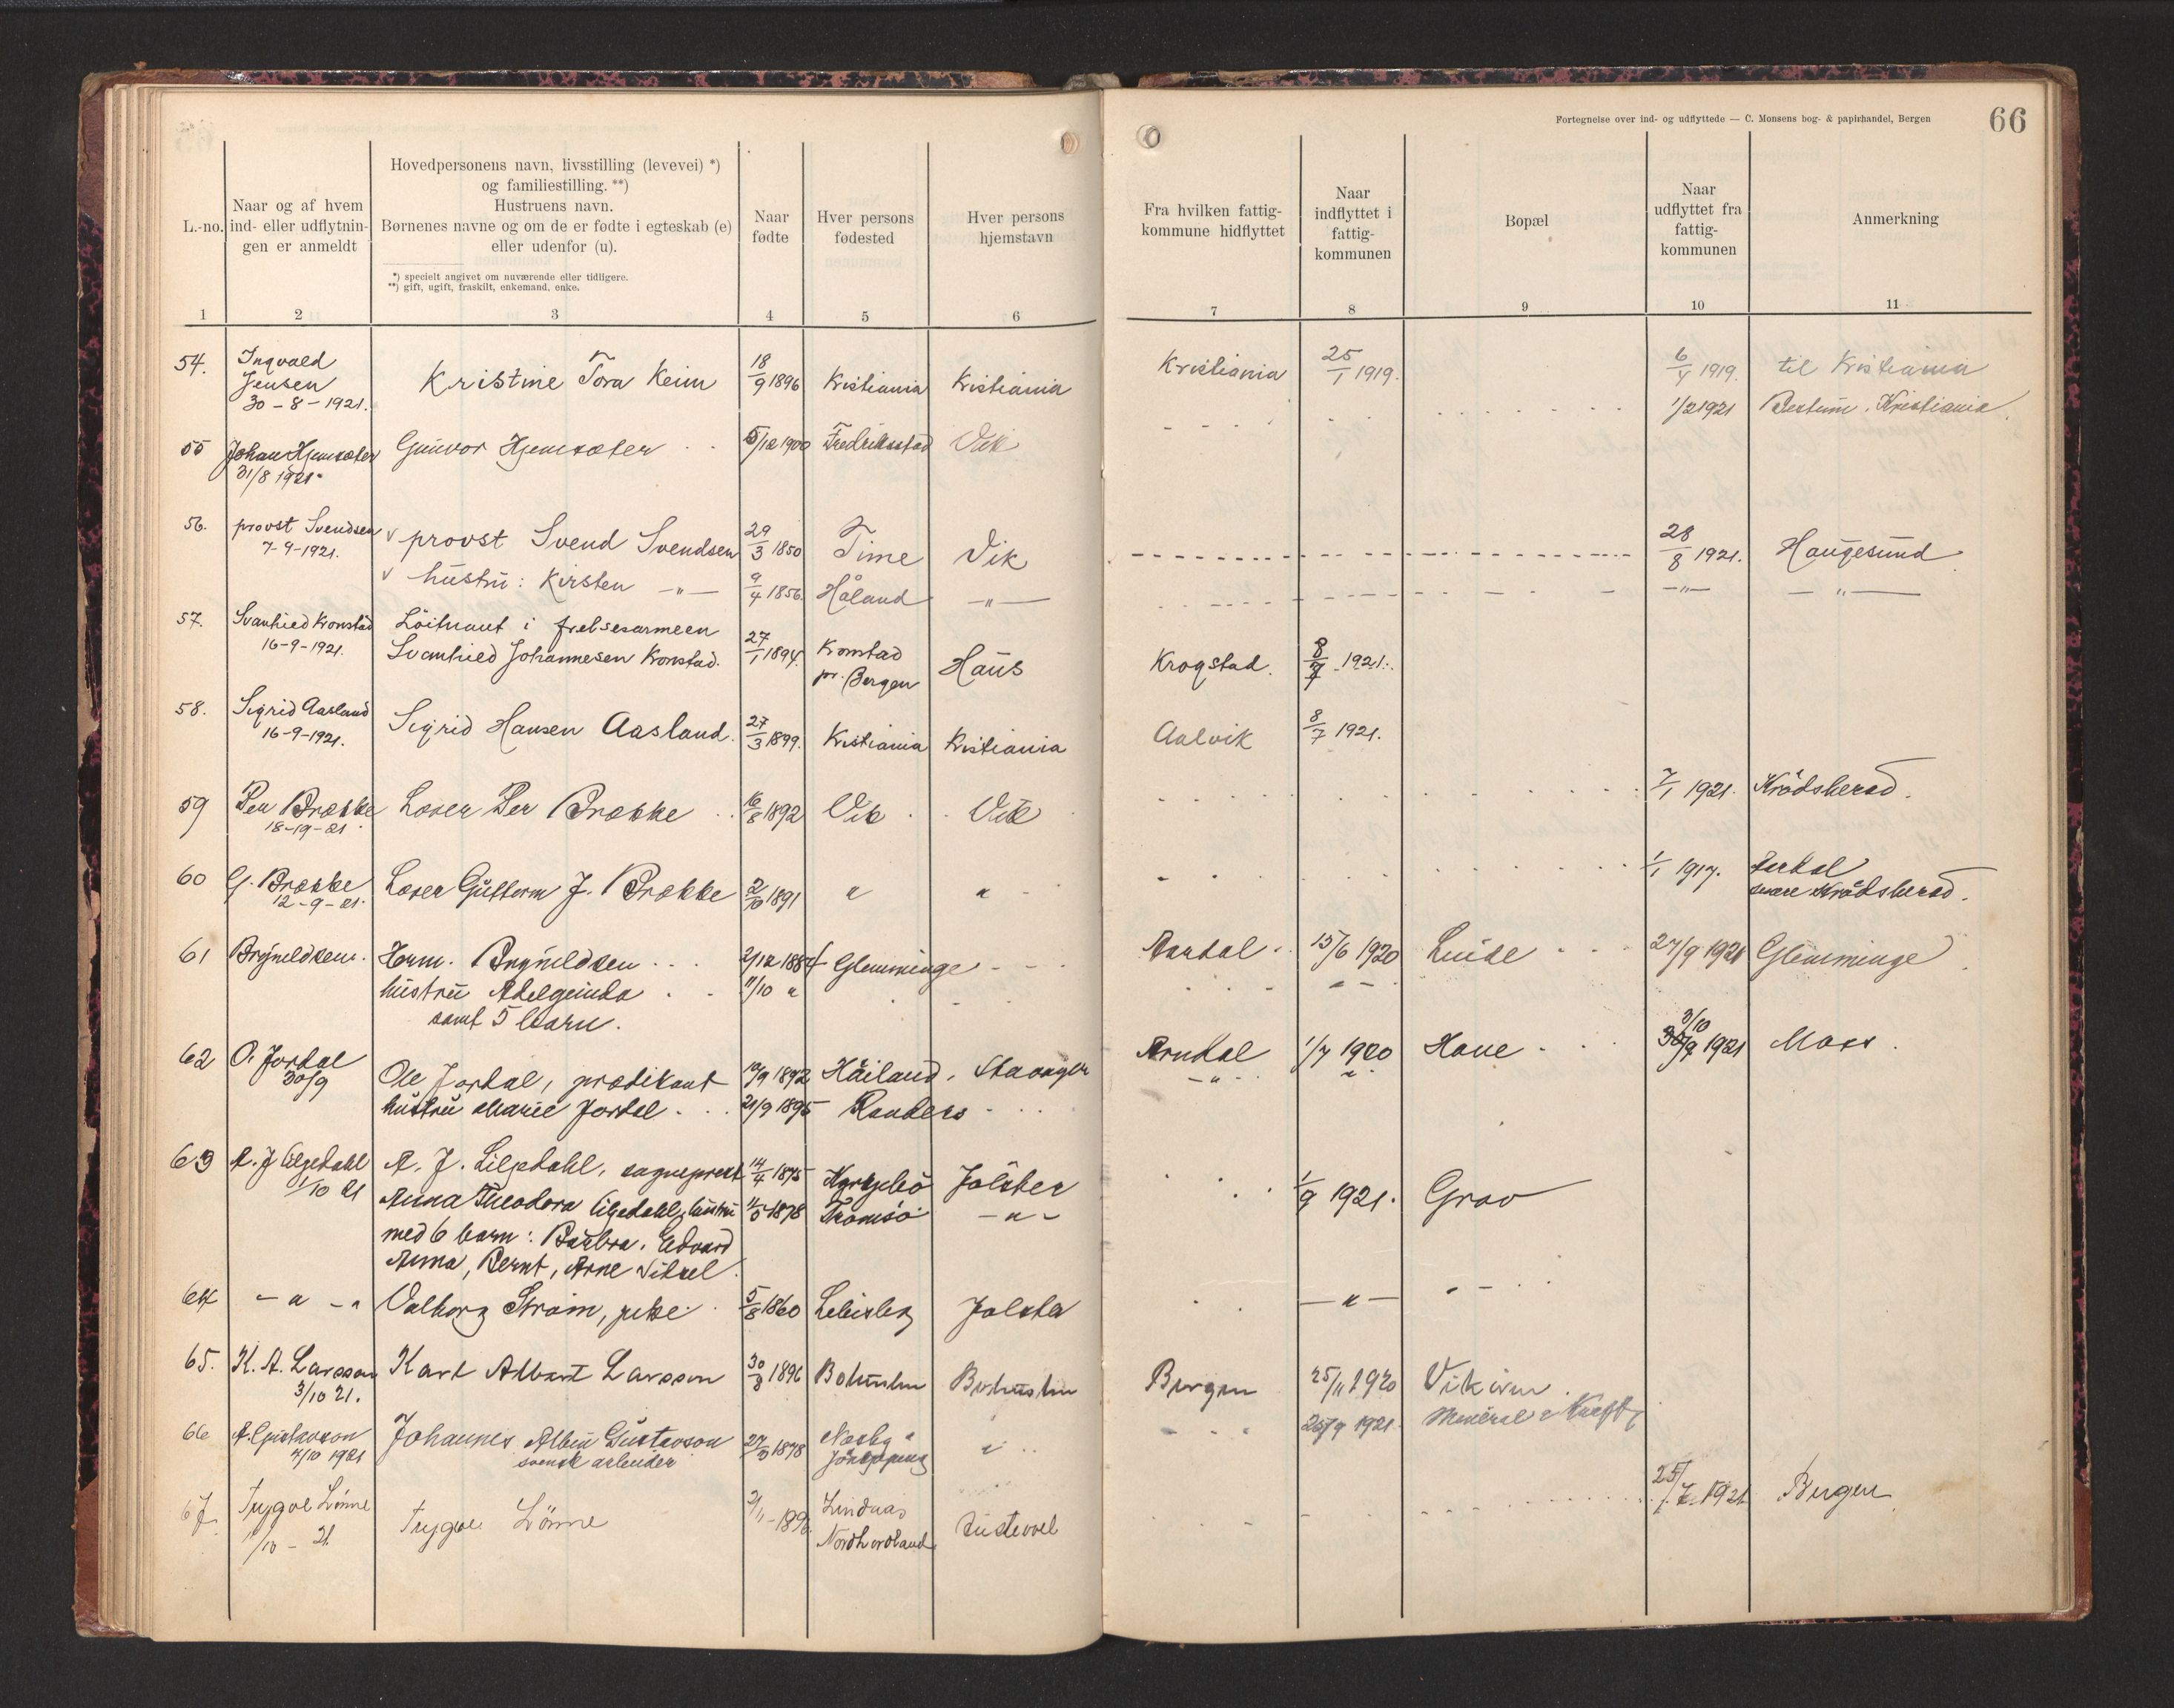 Fortegnelse over ind- og udflyttede — C. Monsens bog- & papirhandel, Bergen
66
L.-no.
Naar og af hvem
ind- eller udflytnin-
gen er anmeldt
Hovedpersonens navn, livsstilling (levevei) *)
og familiestilling. **)
Hustruens navn.
Børnenes navne og om de er fødte i egteskab (e)
eller udenfor (u).
*) specielt angivet om nuværende eller tidligere.
**) gift, ugift, fraskilt, enkemand, enke.
Naar
fødte
Hver persons
fødested
Hver persons
hjemstavn
Fra hvilken fattig-
kommune hidflyttet
Naar
indflyttet i
fattig-
kommunen
Bopæl
Naar
udflyttet fra
fattig-
kommunen
Anmerkning
1 2 3 4 5 6 7 8 9 10 11
54. Ingvald
Jensen
30-8-1921.
Kristine Tora Keim 18/9 1896 Kristiania Kristiania Kristiania 25/1 1919. 6/4 1919. til Kristiania
55 Johan Hjemsæter
31/8 1921.
Gunvor Hjemsæter 5/12 1900 Fredriksstad Vik 1/2 1921 Bestum. Kristiania.
56. provst Svendsen
7-9-1921.
v provst Svend Svendsen 29/3 1850 Time Vik 28/8 1921. Haugesund
v hustru: Kirsten -"- 9/4 1856. Håland -"- -"- -"-
57. Svanhied Kronstad
16-9-1921.
Löitnant i frelsesarmeen
Svanhied Johannesen Kronstad. 27/1 1894. Kronstad
pr. Bergen
Haus Krogstad. 8/7 1921.
58. Sigrid Aasland
16-9-1921.
Sigrid Hansen Aasland. 27/3 1899. Kristiania Kristiania Aalvik 8/7 1921.
59 Per Brække
18-19-21.
Loser Per Brække 16/8 1892 Vik Vik 7/1 1921. Krødsherad.
60 G. Brække
12-9-21.
Loser Guttorm J. Brække 2/10 1891 " " 1/1 1917.
Krødsherad.
61 Brynildsen. Herm. Brynildsen 2/12 1884 Glemminge Aardal 15/6 1920 Linde 27/9 1921 Glemminge
hustru Adelgunda 11/10 "
samt 5 barn.
62 O. Jordal
30/9
Ole Jordal, prædikant 19/9 1892 Håiland, Stavanger Arndal 1/7 1920 Hove 3/10
30/9 1921 Moss.
hustru Marie Jordal 21/9 1895 Randers -"- "
63 A. J Liljedahl
1/10 21
A. J. Liljedahl, sogneprest 14/4 1875 Jölster 1/9 1921. Grov
Anna Theodora Liljedahl, hustru 11/5 1878 Tromsö -"-
med 6 barn: Barbra, Edvard
Anna, Bernt, Arne
64 -"- Valborg Strøm, pike 5/8 1860 Jølster -"-
65. K. A. Larsson
3/10 21.
Karl Albert Larsson 30/8 1896 Bohuslen Bohuslen Bergen 25/11 1920 Vikøren.
66 A. Gustavson
4/10 1921
Johannes Albin Gustavson
svensk arbeider
27/3 1878 Næsby
Jönköping
" 25/9 1921.
67. Trygve Lönne
1/10 - 21
Trygve Lönne 2/11-1896. Lindaas
Nordhordland
Austevoel 25/7 1921 Bergen